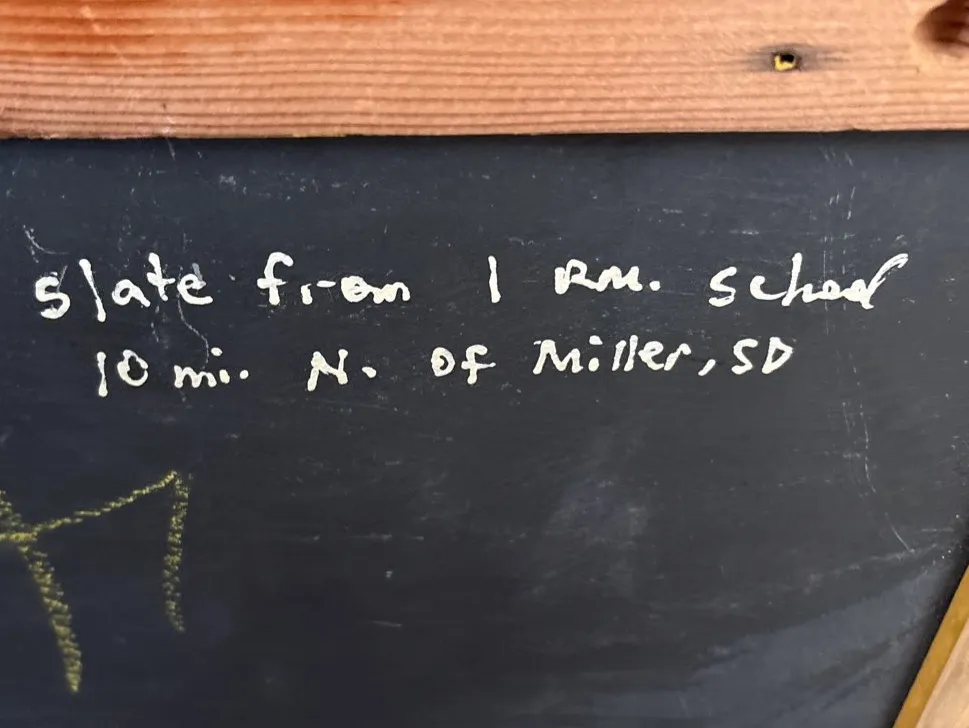 Slate from 1 Rm. School
10 mi. N. of Miller, SD